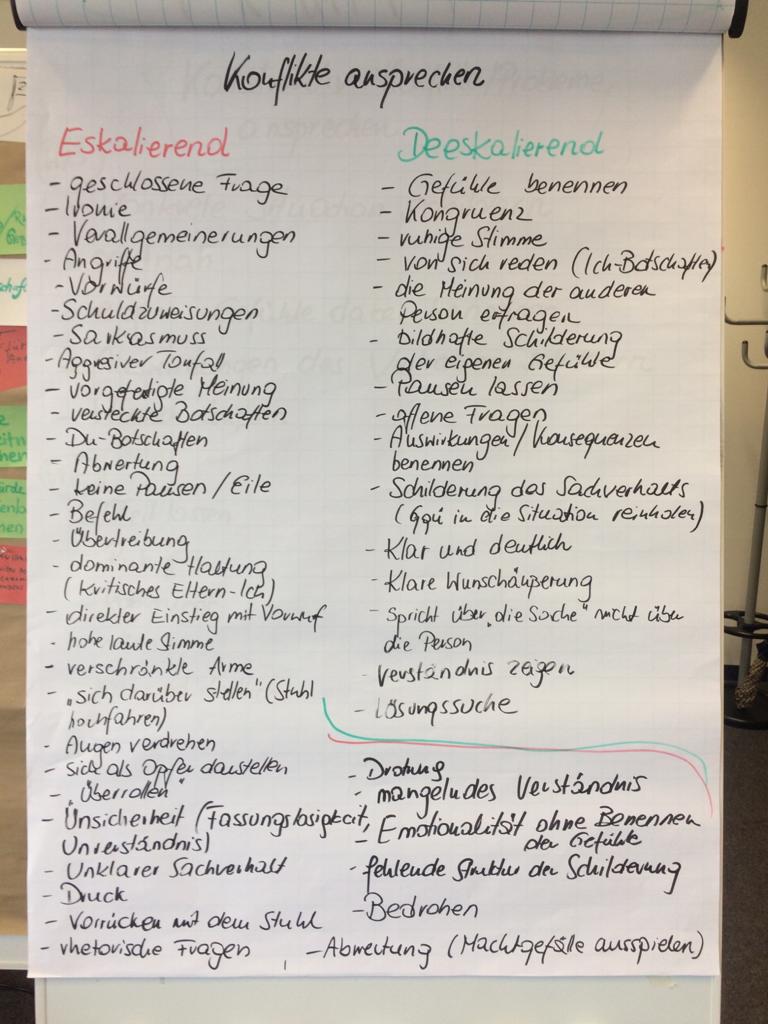 Konflikte ansprechen
Eskalierend
- geschlossene Frage
- Ironie
- Verallgemeinerungen
- Angriffe
- Vorwürfe
- Schuldzuweisungen
- Sarkasmuss
- Aggresiver Tonfall
- vorgefertigte Meinung
- versteckte Botschaften
- Du-Botschaften
- Abwertung
- keine Pausen / Eile
- Befehl
- Übertreibung
- dominante Haltung
(kritisches Eltern-Ich)
- direkter Einstieg mit Vorwurf
- hohe laute Stimme
- verschränkte Arme
- „sich darüber stellen" (Stuhl
hochfahren)
- Augen verdrehen
- sich als Opfer darstellen
- „Überrollen"
- Unsicherheit (Fassungslosigkeit,
Unverständnis)
- Unklarer Sachverhalt
- Druck
- Vorrücken mit dem Stuhl
- rhetorische Fragen
Deeskalierend
- Gefühle benennen
- Kongruenz
- ruhige Stimme
- von sich reden (Ich-Botschaften)
- die Meinung der anderen
Person erfragen
- bildhafte Schilderung
der eigenen Gefühle
- Pausen lassen
- offene Fragen
- Auswirkungen / Konsequenzen
benennen
- Schilderung des Sachverhalts
(Ggü in die Situation reinholen)
- Klar und deutlich
- Klare Wunschäußerung
- Spricht über „die Sache" nicht über
die Person
- Verständnis zeigen
- Lösungssuche
- Drohung
- mangelndes Verständnis
- Emotionalität ohne Benennen
der Gefühle
- fehlende Struktur der Schilderung
- Bedrohen
- Abwertung (Machtgefälle ausspielen)